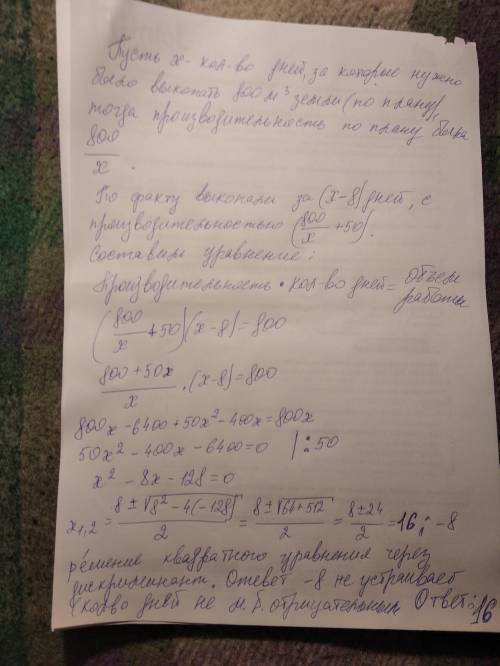 Пусть x- кол-во дней, за которые нужно
было выкопать 800 м³ земли (по плану)
тогда производительность по плану была
800/x .
По факту выкопали за (x-8) дней, с
производительностью (800/x +50).
Составим уравнение:
Производительность • кол-во дней = объем работы
(800/x +50)(x-8)=800
(800+50x)/x · (x-8)=800
800x -6400+50x²-400x=800x
50x² -400x -6400=0 | : 50
x² - 8x -128=0
x₁,₂ = (8±√(8²-4(-128)))/2 = (8±√(64+512))/2 = (8±24)/2 =16; -8
решение квадратного уравнения через
дискриминант. Ответ -8 не устраивает
(кол-во дней не м.б. отрицательным Ответ: 16